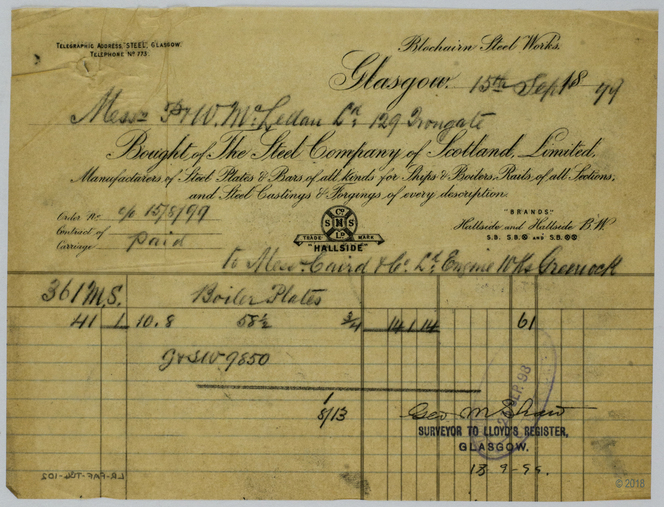 TELEGRAPHIC ADDRESS, "STEEL", GLASGOW.
TELEPHONE Nº 773.
Blochairn Steel Works.
Glasgow. 15th Sept 1899
Messrs P & W. McLellan Ld. 129 Trongate
Bought of The Steel Company of Scotland, Limited,
Manufacturers of Steel Plates & Bars of all kinds for Ships & Boilers, Rails of all Sections,
and Steel Castings & Forgings of every description.
Order No. c/o 15/8/99
Contract of
Carriage Paid
Co SMS Ld
TRADE MARK
"HALLSIDE"
"BRANDS"
Hallside and Hallside B.W
S.B. S.B. AND S.B.
To Messrs Caird & Co. Ld. Engine Wks Greenock
361 M.S. Boiler Plates
41 1 10.8 58½ ¾ 14 1 14 61
9850
1
8/13
Geo M Shaw
SURVEYOR TO LLOYD'S REGISTER,
GLASGOW.
18-9-99.
LR-FAF-T04-102
© 2018